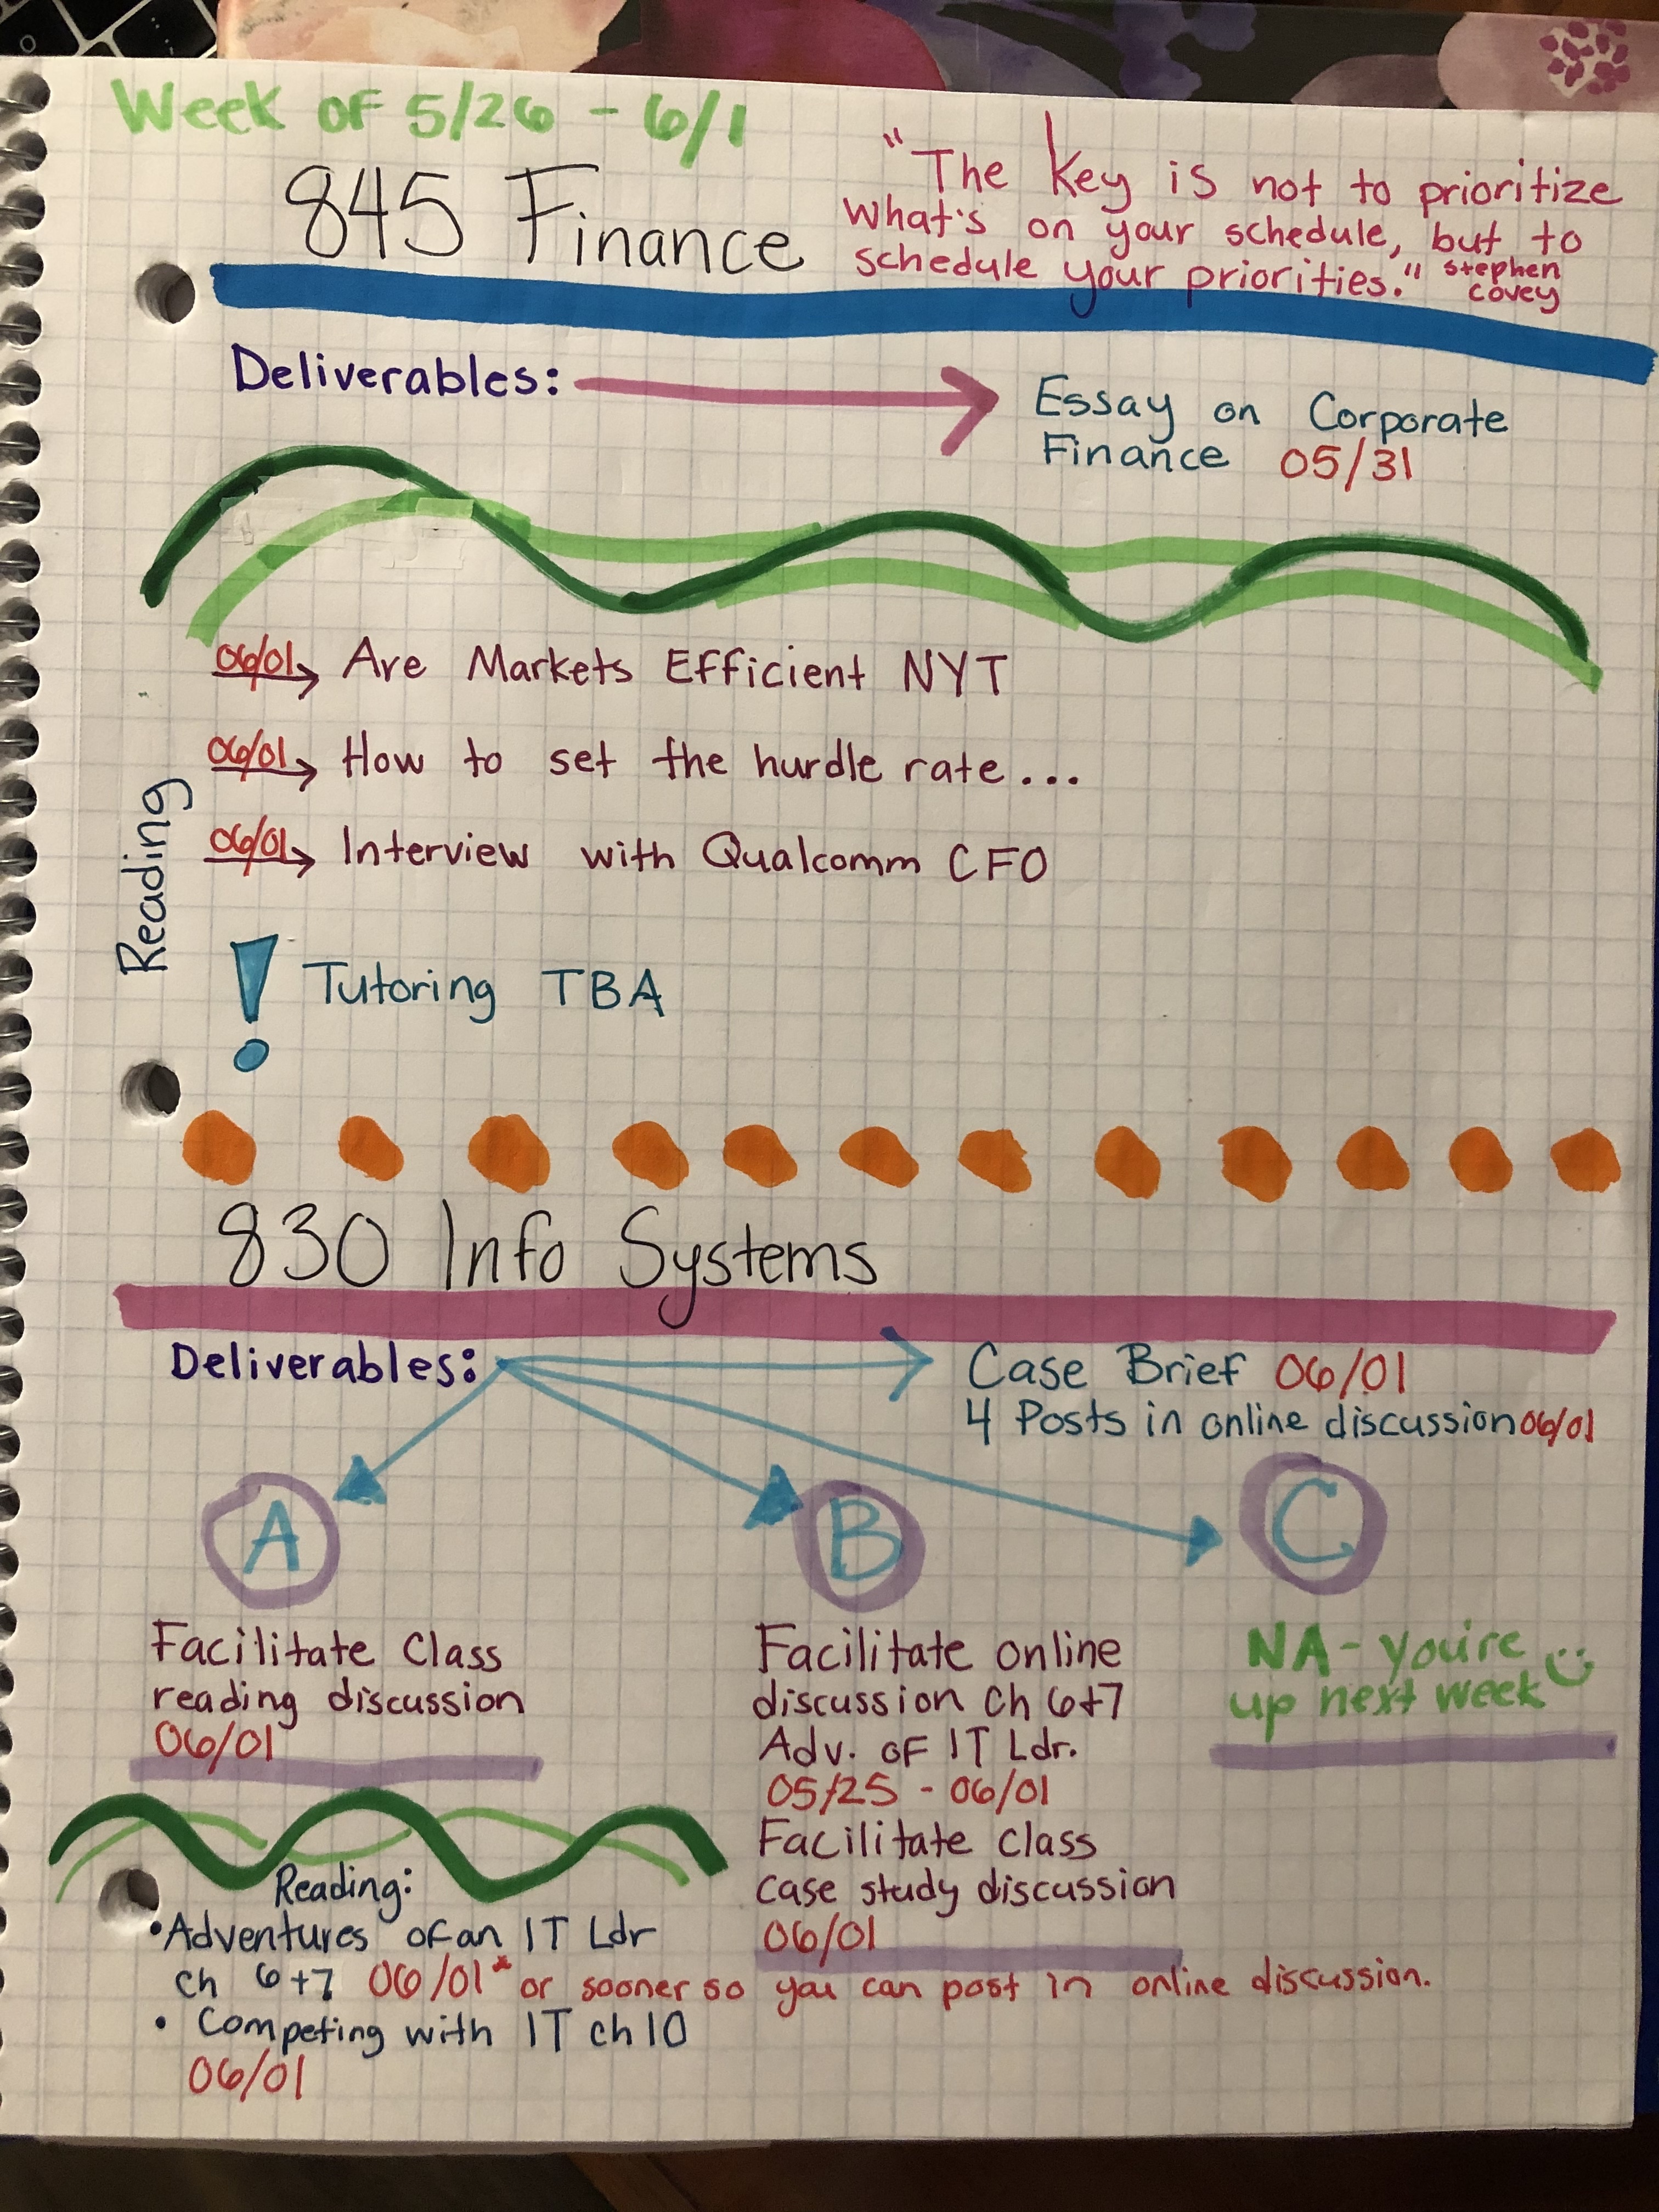 Week of 5/26 - 6/1
845 Finance
"The key is not to prioritize
what's on your schedule, but to
schedule your priorities." Stephen
Covey
Deliverables:
Essay on Corporate
Finance 05/31
Reading
06/01 Are Markets Efficient NYT
06/01 How to set the hurdle rate...
06/01 Interview with Qualcomm CFO
! Tutoring TBA
830 Info Systems
Deliverables:
Case Brief 06/01
4 Posts in online discussion 06/01
A
Facilitate Class
reading discussion
06/01
B
Facilitate online
discussion Ch 6+7
Adv. of IT Ldr.
05/25 - 06/01
Facilitate class
case study discussion
06/01
C
NA - you're
up next week
Reading:
• Adventures of an IT Ldr
ch 6+7 06/01* or sooner so you can post in online discussion.
• Competing with IT ch 10
06/01